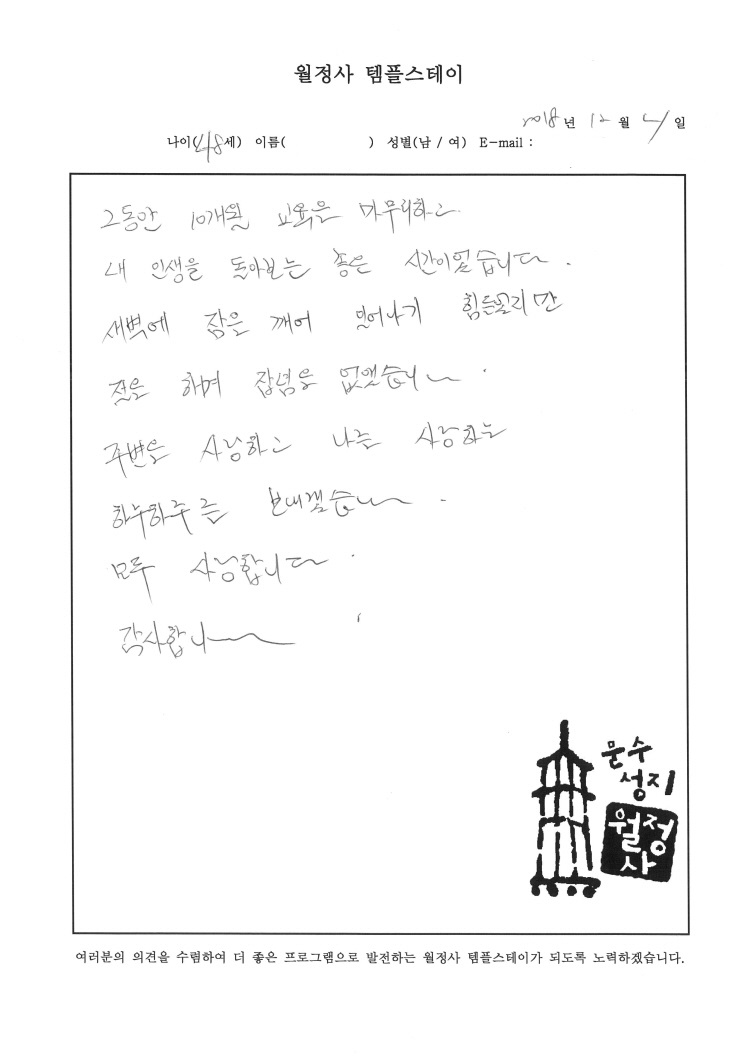 월정사 템플스테이
2018년 12월 4일
나이(48세) 이름( ) 성별(남 / 여) E-mail :
그동안 10개월 교육을 마무리하고
내 인생을 돌아보는 좋은 시간이었습니다.
새벽에 잠을 깨어 일어나기 힘들었지만
절을 하며 잡념을 없앴습니다.
주변을 사랑하고 나를 사랑하는
하루하루를 보내겠습니다.
모두 사랑합니다.
감사합니다
문수
성지
월정
사
여러분의 의견을 수렴하여 더 좋은 프로그램으로 발전하는 월정사 템플스테이가 되도록 노력하겠습니다.